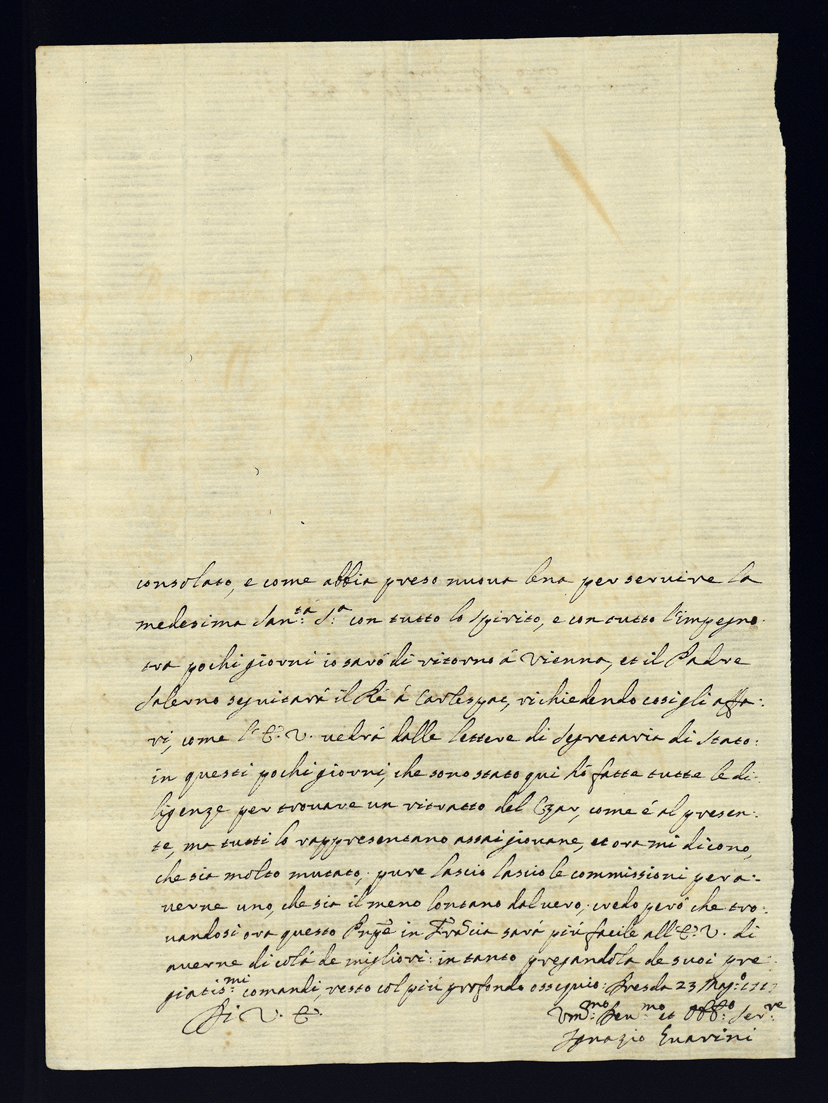 consolato, e come abbia preso nuova lena per servire la
medesima San:ta S:a con tutto lo spirito, e con tutto l'impegno.
tra pochi giorni io sarò di ritorno á Vienna, et il Padre
Salerno seguitará il Ré á Carlespat, richiedendo cosi gli affa:
ri, come l'E: V. vedrá dalle lettere di Segretaria di Stato:
in questi pochi giorni, che sono stato qui hó fatte tutte le di:
ligenze per trovare un ritratto del Czar, come é al presen:
te, ma tutti lo rappresentano assai giovane, et ora mi dicono,
che sia molto mutato; pure lascio lascio le commissioni per a:
verne uno, che sia il meno lontano dal vero; credo peró che tro:
vandosi ora questo Pnpe in Francia sará piú facile all'E: V. di
averne di colá de migliori: in tanto pregandola de suoi pre:
giatis:mi comandi, resto col piú profondo ossequio: Dresda 23 Mag:o 1717
Di V. E. Vm:mo Dev:mo et Obb:o Ser:re
Ignazio Guarini